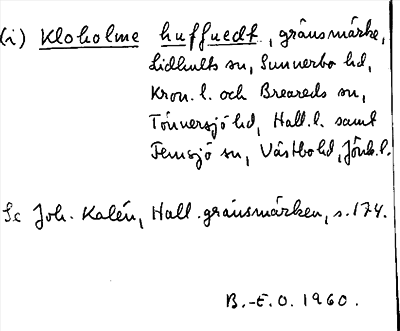 (i) Kloholme huffuedt, gränsmärke,
Lidhults sn, Sunnerbo hd,
Kron. l. och Breareds sn,
Tönnersjö hd, Hall. l. samt
Femsjö sn, Västbo hd, Jönk. l.
Se Joh. Kalén, Hall. gränsmärken, s. 174.
B.-E.O. 1960.